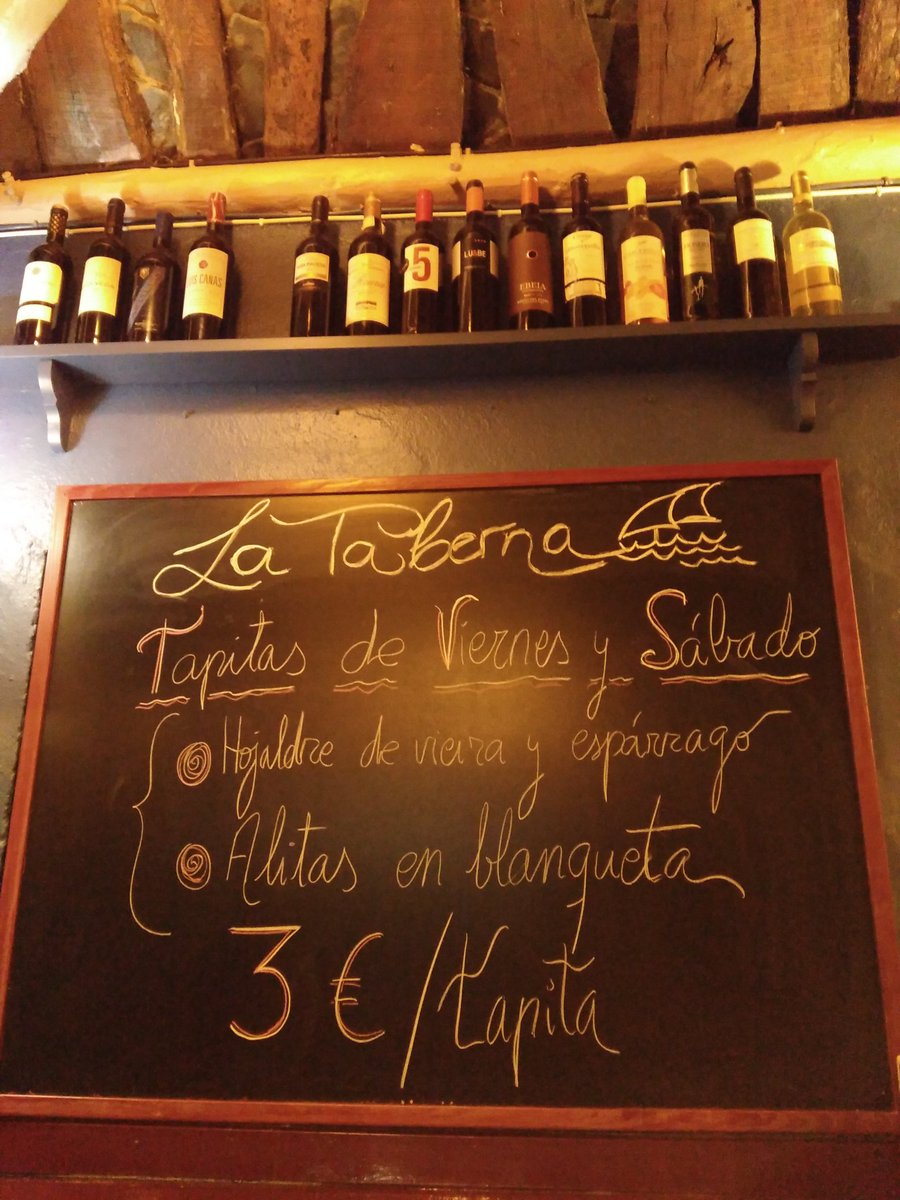 5
EBEIA
La Taberna
Tapitas de Viernes y Sábado
Hojaldre de vieira y espárrago
Alitas en blanqueta
3 € / tapita